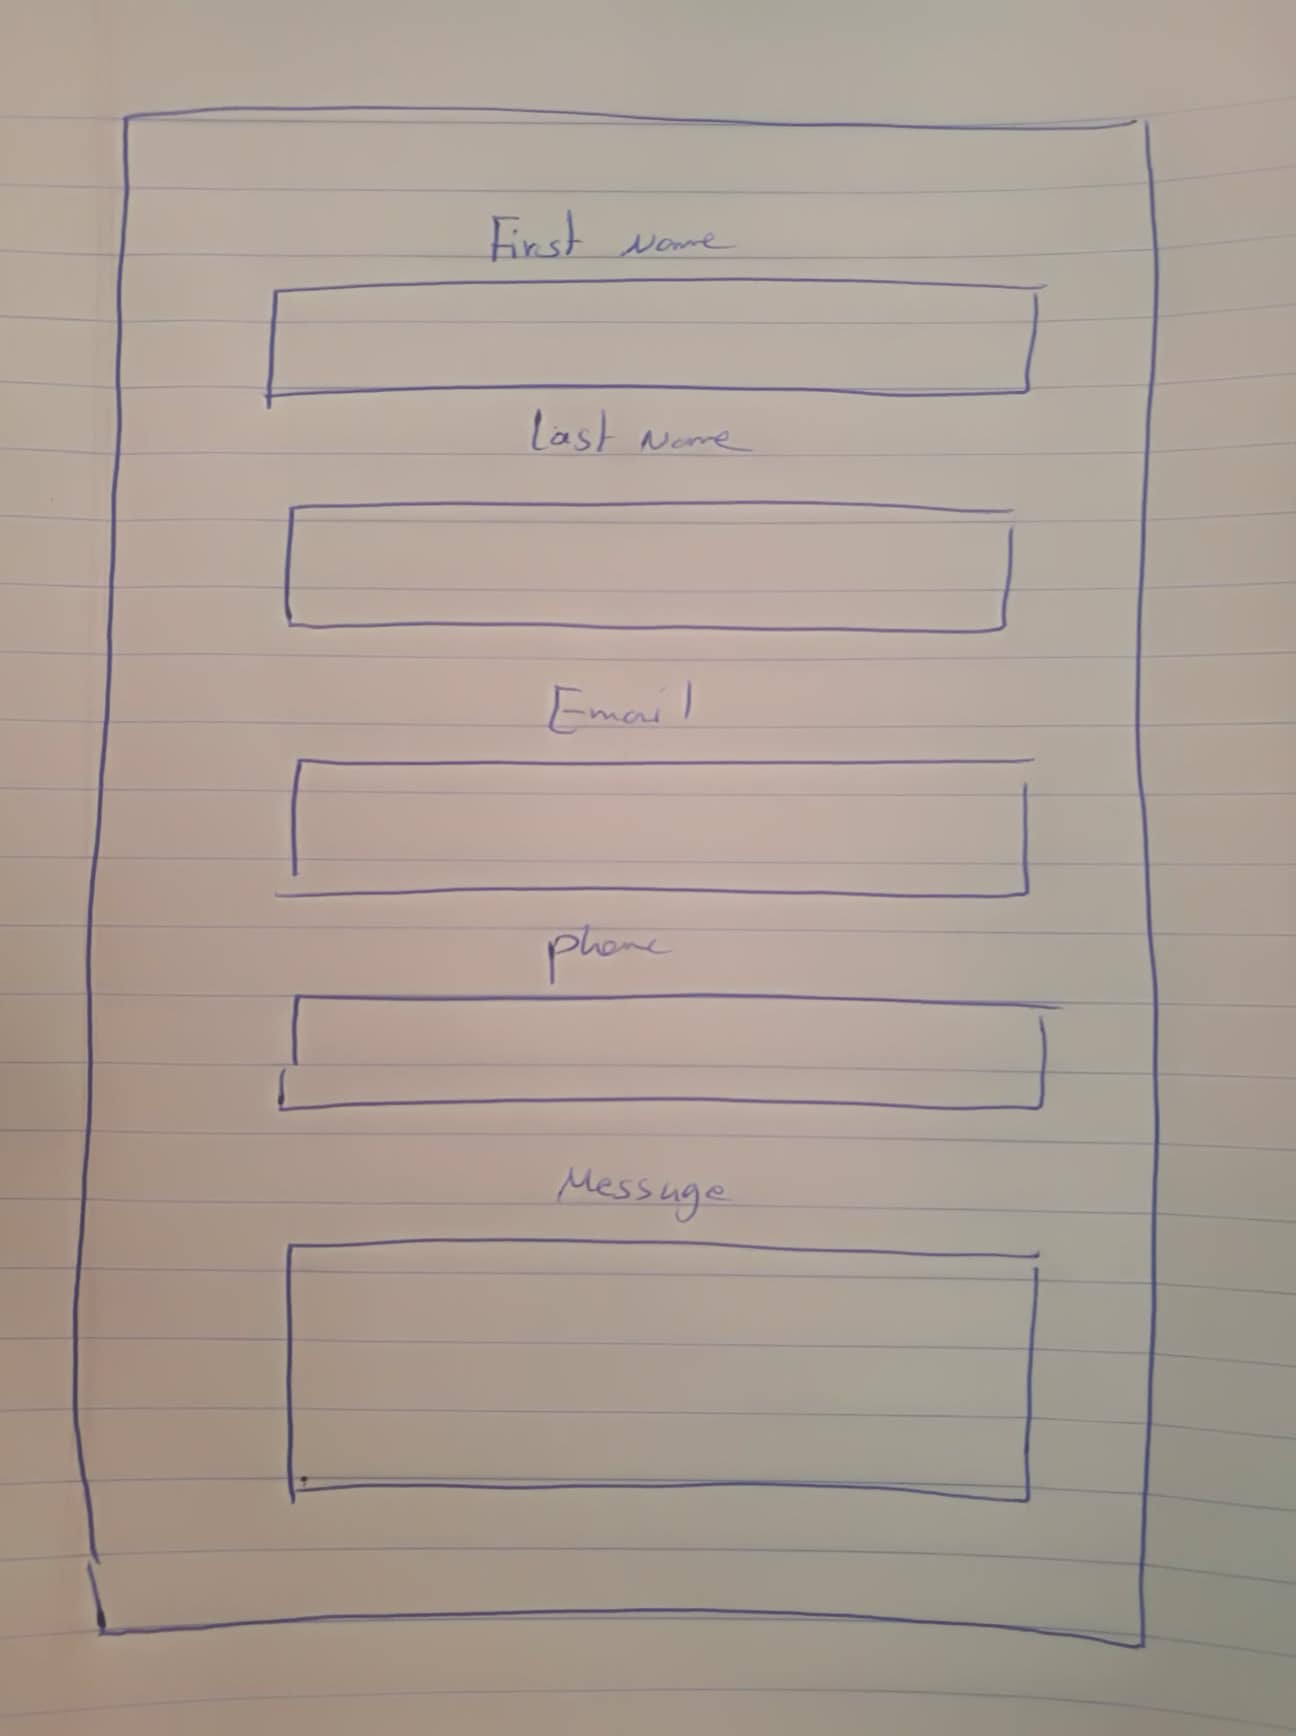 First Name
Last Name
Email
phone
Message